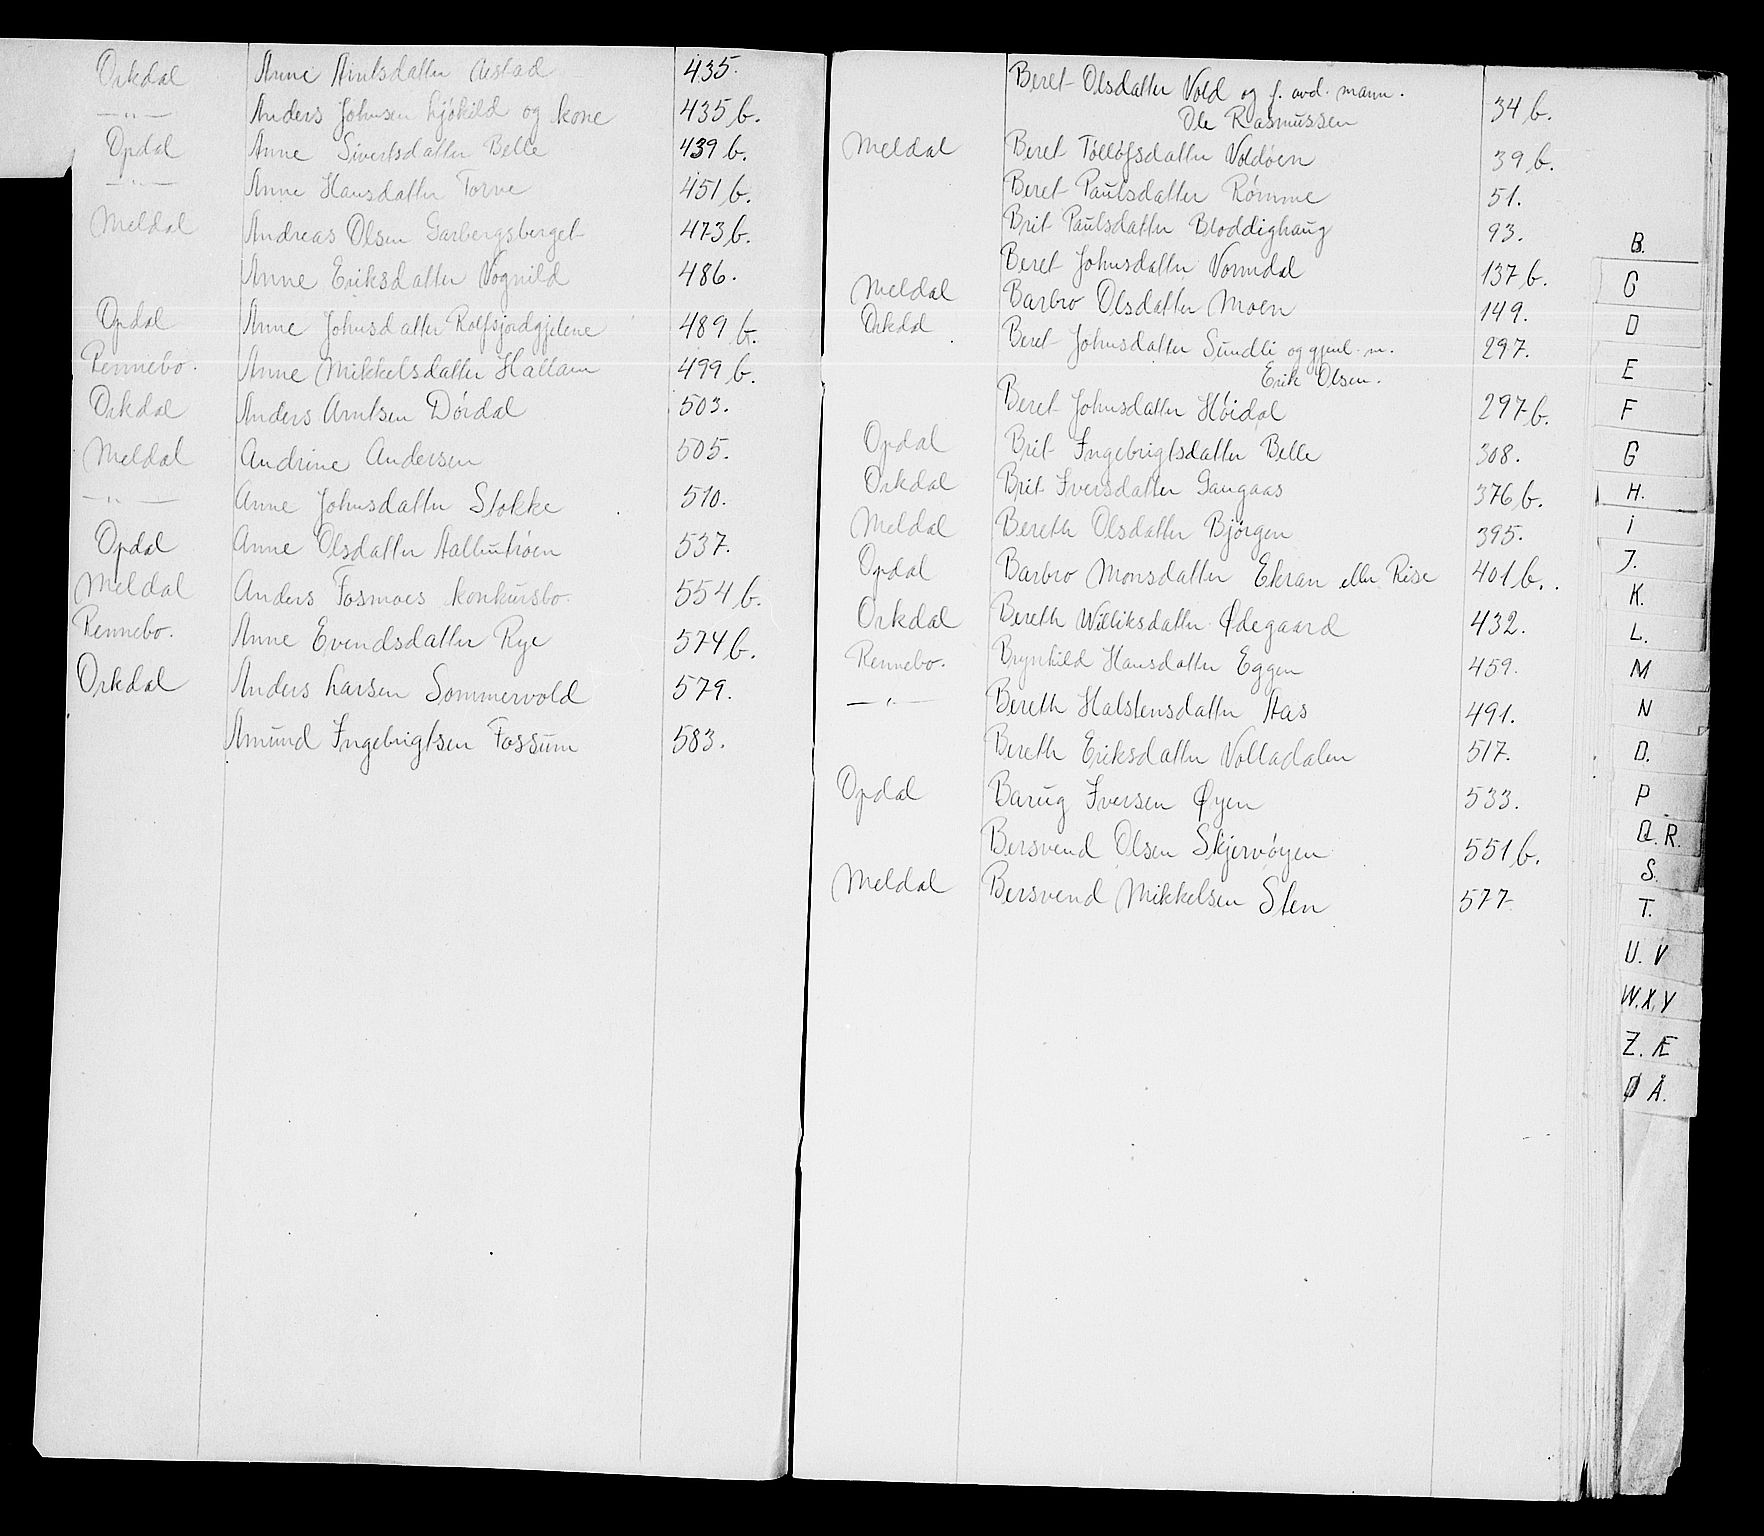 Orkdal Anne Arntsdatter Aestad 435.
—"— Anders Johnsen Ljøkild og kone 435 b.
Opdal Anne Sivertsdatter Belle 439 b.
—"— Anne Hansdatter Torve 451 b.
Meldal Andreas Olsen Garbergsberget 473 b.
Anne Eriksdatter Vognild 486.
Opdal Anne Johnsdatter 489 b.
Rennebo. Anne Mikkelsdatter Hallam 499 b.
Orkdal Anders Arntsen Dørdal 503.
Meldal Andrine Andersen 505.
—"— Anne Johnsdatter Stokke 510.
Opdal Anne Olsdatter 537.
Meldal Anders Fosmoes konkursbo. 554 b.
Rennebo. Anne Evendsdatter Rye 574 b.
Orkdal Anders Larsen Sommervold 579.
Amund Ingebrigtsen Fossum 583.
Beret Olsdatter Vold og f. avd. mann.
Ole Rasmussen 34 b.
Meldal Beret Tølløfsdatter Voldøen 39 b.
Beret Paulsdatter Rømme 51.
Brit Paulsdatter Bloddighaug 93.
Beret Johnsdatter Vormdal 137 b.
Meldal Barbro Olsdatter Moen 149.
Orkdal Beret Johnsdatter Sundli og gjenl. m. 297.
Erik Olsen.
Beret Johnsdatter Høidal 297 b.
Opdal Brit Ingebrigtsdatter Belle 308.
Orkdal Brit Iversdatter Gangaas 376 b.
Meldal Bereth Olsdatter Bjørgen 395.
Opdal Barbro Monsdatter Ekran eller Rise 401 b.
Orkdal Bereth Williksdatter Ødegaard 432.
Rennebo. Brynhild Hansdatter Eggen 459.
—"— Bereth Halstensdatter Aas 491.
Bereth Eriksdatter Volladalen 517.
Opdal Barug Iversen Øyen 533.
Bersvend Olsen Skjervøyen 551 b.
Meldal Bersvend Mikkelsen Sten 577
B.
C
D
E
F
G
H.
i
J.
K.
L.
M
N
O.
P
Q. R.
S.
T.
U. V
W. X. Y
Z. Æ
Ø Å.